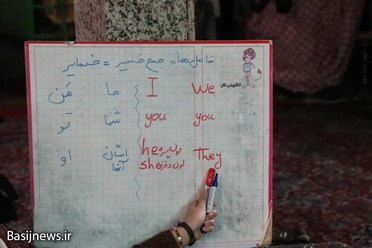 فاعل ها = جمع ضمیر = ضمایر
من ما I We
تو شما you you
او ایشان he They
آنها she
Basijnews.ir